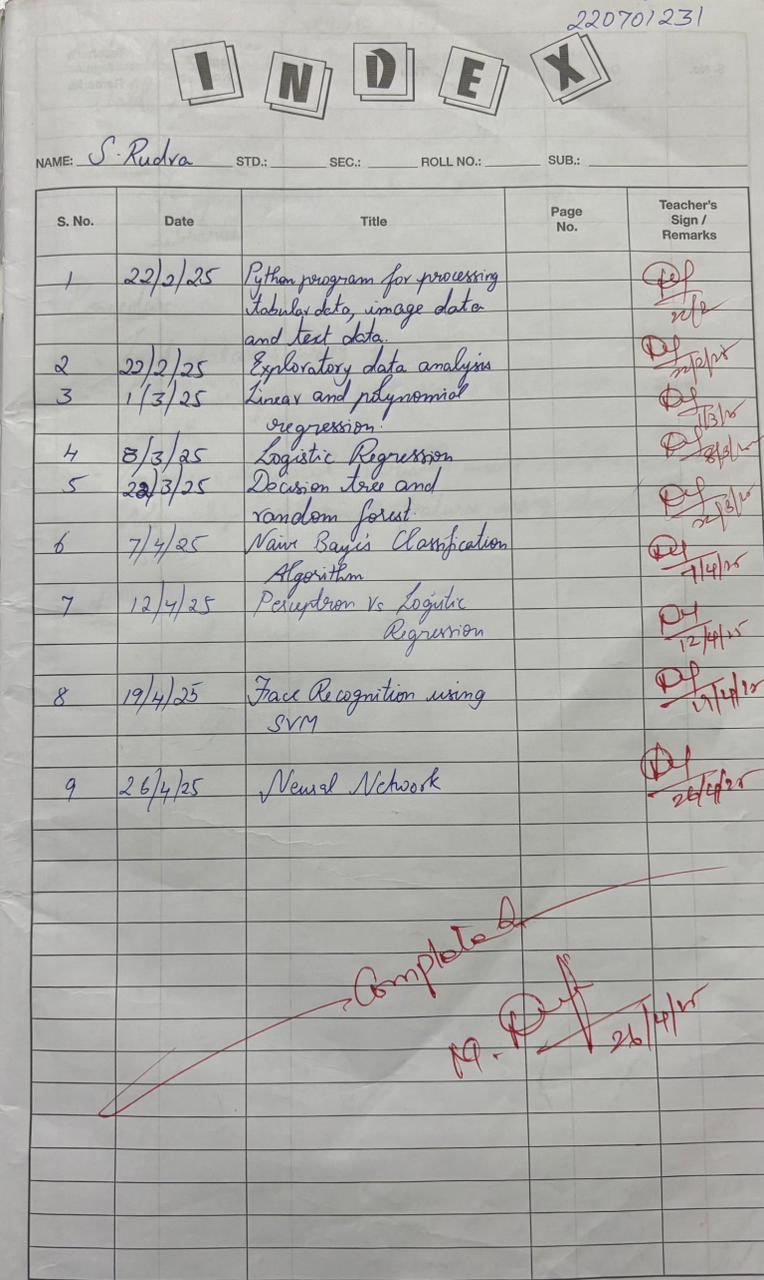 220701231
INDEX
NAME: S. Rudra STD.: SEC.: ROLL NO.: SUB.:
S. No. Date Title Page No. Teacher's Sign / Remarks
1 22/2/25 Python program for processing
tabular data, image data 22/2
and text data.
2 22/2/25 Exploratory data analysis 22/2/25
3 1/3/25 Linear and polynomial 1/3/25
regression.
4 8/3/25 Logistic Regression 8/3/25
5 22/3/25 Decision tree and 22/3/25
random forest.
6 7/4/25 Naive Baye's Classification 7/4/25
Algorithm
7 12/4/25 Perceptron Vs Logistic
Regression 12/4/25
8 19/4/25 Face Recognition using 19/4/25
SVM
9 26/4/25 Neural Network 26/4/25
Completed
M. 26/4/25